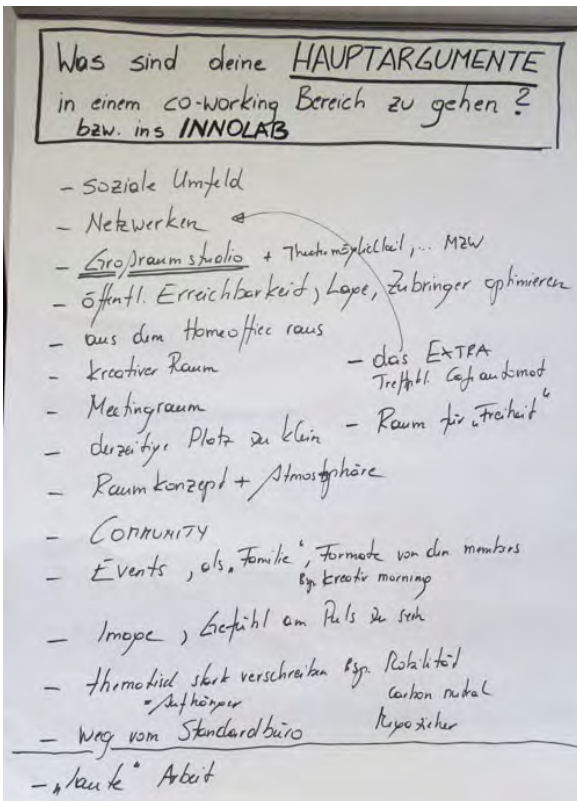 Was sind deine HAUPTARGUMENTE
in einem co-working Bereich zu gehen?
bzw. ins INNOLAB
- soziale Umfeld
- Netzwerken
- Großraumstudio + Theatermöglichkeit, ... MZW
- öffentl. Erreichbarkeit, Lage, Zubringer optimieren
- aus dem Homeoffice raus
- kreativer Raum
- das EXTRA
Treffpkt. Cafeautomat
- Meetingraum
- Raum für „Freiheit“
- derzeitige Platz zu klein
- Raumkonzept + Atmosphäre
- COMMUNITY
- Events, als „Familie“, Formate von den members
Bsp. kreativ morning
- Image, Gefühl am Puls zu sein
- thematisch stark verschreiben Bsp.
= Aufhänger
carbon
- Weg vom Standardbüro
- „laute“ Arbeit